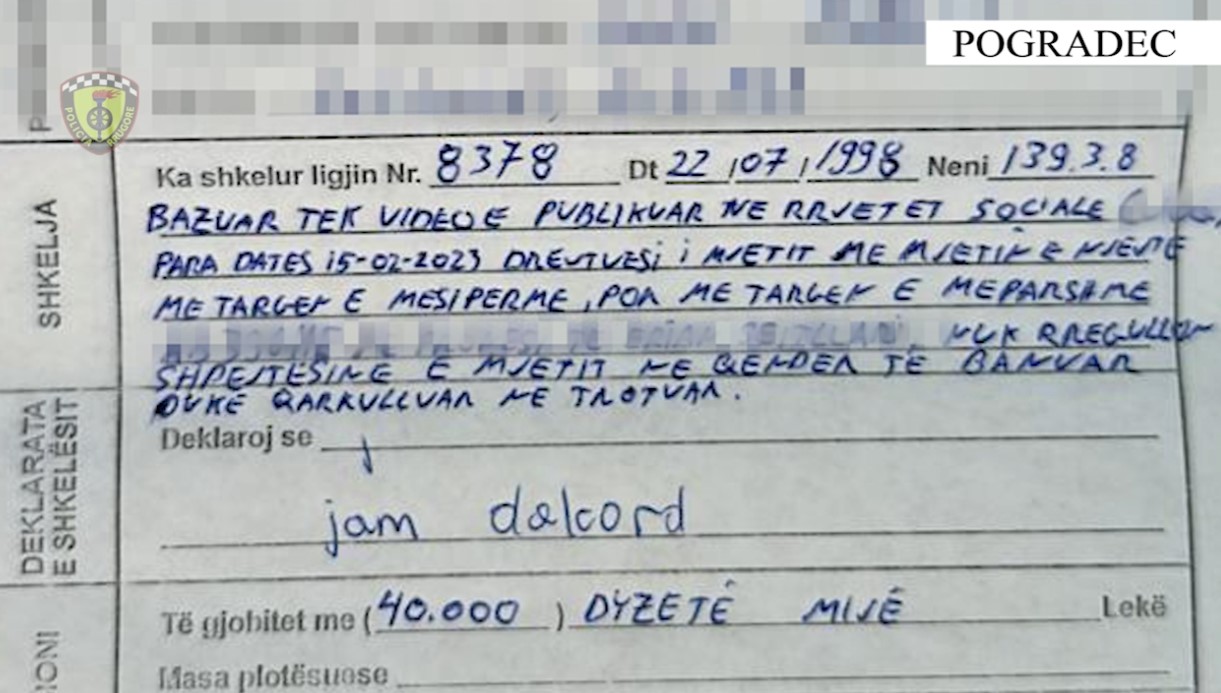 POGRADEC
POLICIA RRUGORE
Ka shkelur ligjin Nr. 8378 Dt 22/07/1998 Neni 139.3.8
SHKELJA
BAZUAR TEK VIDEO E PUBLIKUAR NE RRJETET SOCIALE
PARA DATES 15-02-2023 DREJTUESI I MJETIT ME MJETIN E NJEJTE
ME TARGEN E MESIPERME, POR ME TARGEN E MEPARSHME
NUK RREGULLON
SHPEJTESINE E MJETIT NE QENDER TE BANUAR
DUKE QARKULLUAR NE TROTUAR.
DEKLARATA
E SHKELËSIT
Deklaroj se
jam dakord
Të gjobitet me (40.000) DYZETË MIJË Lekë
IONI
Masa plotësuese